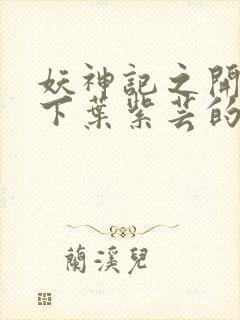 妖神記之開
下葉紫芸的
蘭溪兒